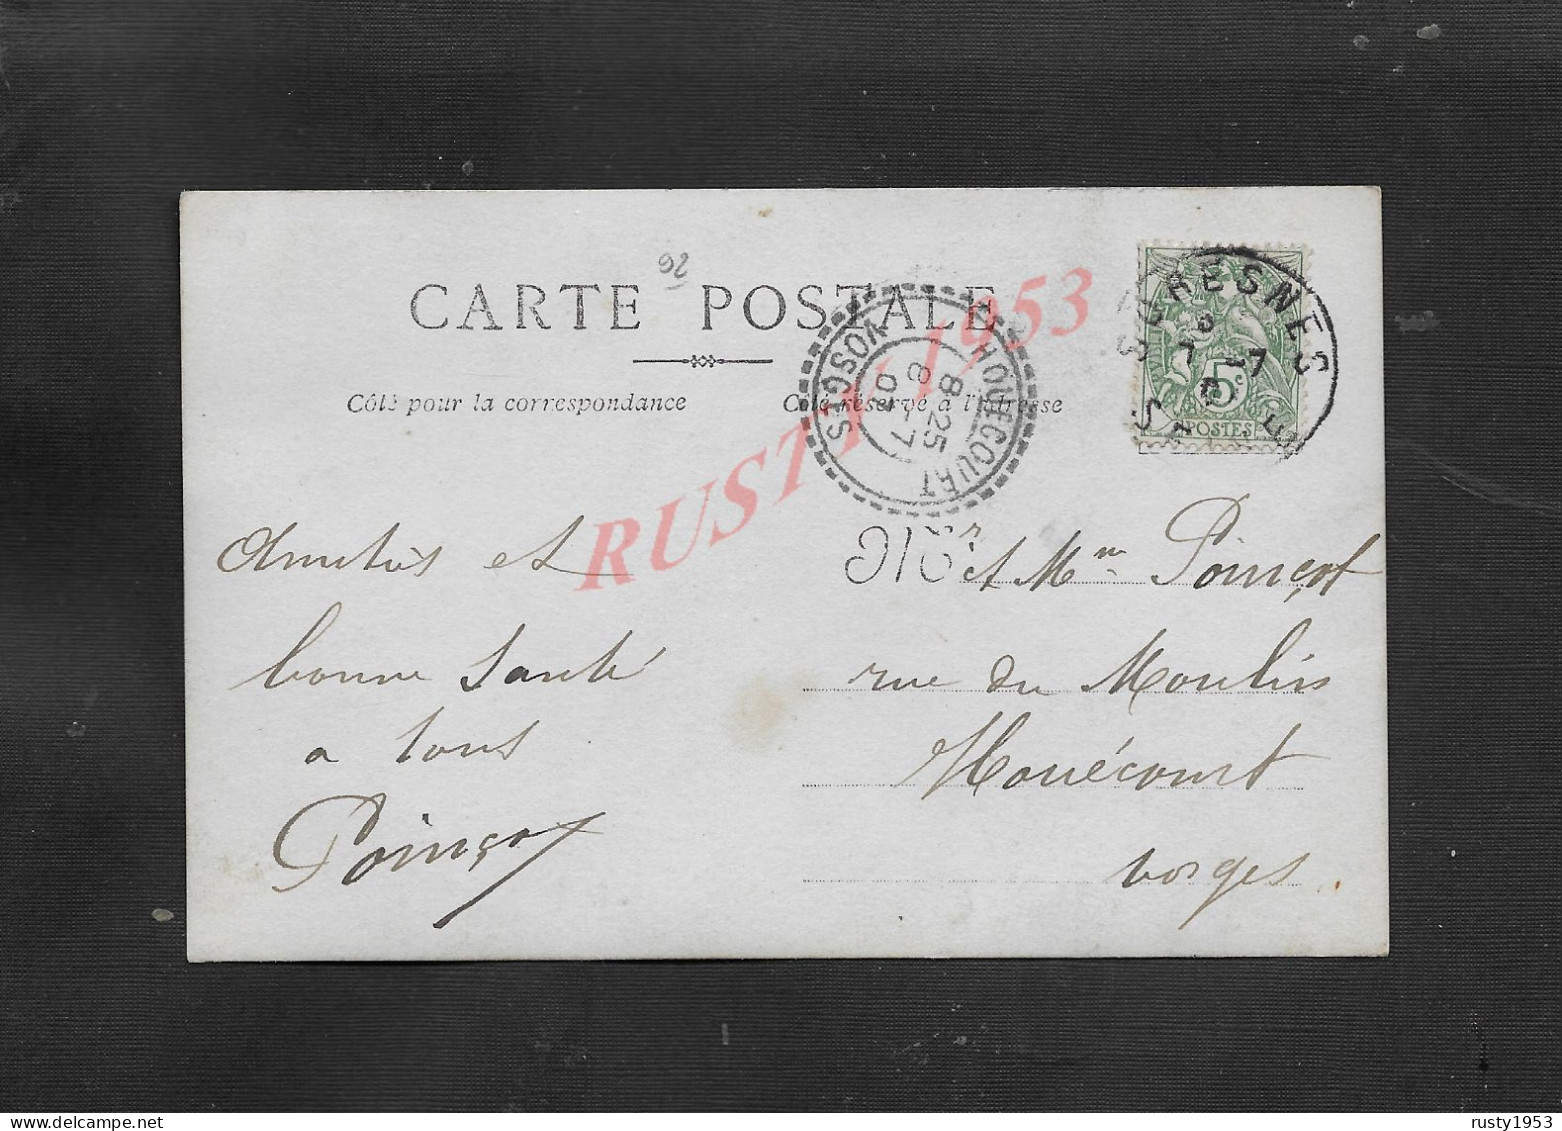 92
CARTE POSTALE
Côté pour la correspondance
Côté réservé à l'adresse
RUSTY 1953
HOUECOURT
8·25
8 -7
05
VOSGES
SURESNES
7 -7
5c
POSTES
Amitiés et
bonne Santé
a tous
Poinçot
Mr et Mme Poinçot
rue du Moulin
Houécourt
vosges.
rusty1953